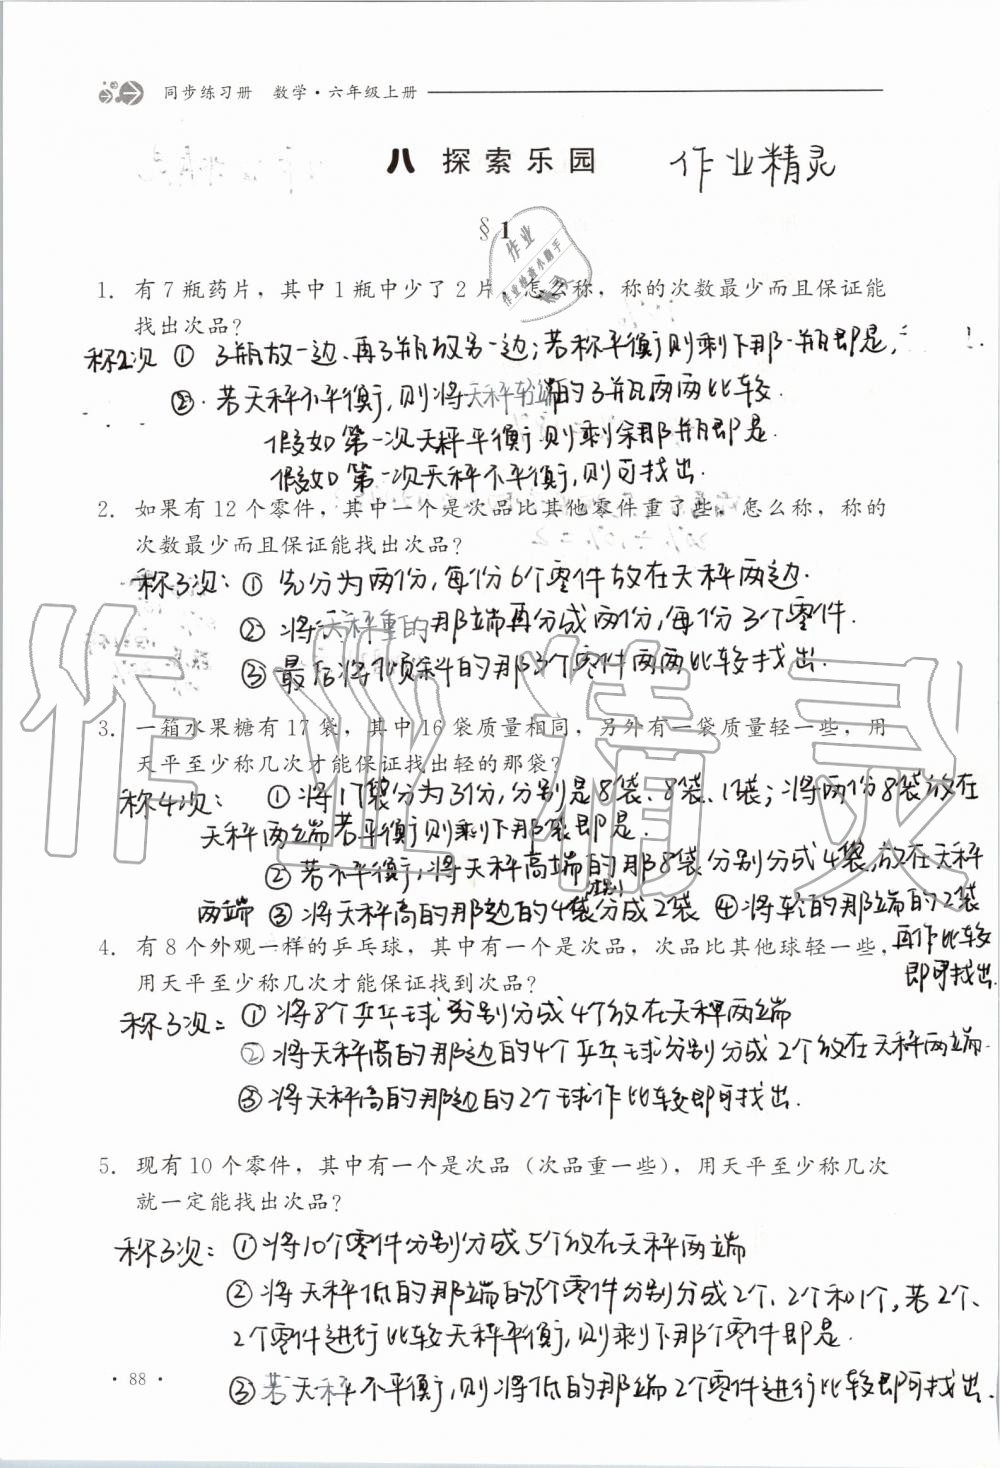 同步练习册 数学·六年级上册
八 探索乐园
作业精灵
§1
作业
作业检查小助手
1. 有7瓶药片，其中1瓶中少了2片，怎么称，称的次数最少而且保证能
找出次品？
称2次 ① 3瓶放一边、再3瓶放另一边；若称平衡则剩下那一瓶即是，
②.若天秤不平衡，则将天秤轻端的3瓶两两比较.
假如第一次天秤平衡则剩余那瓶即是.
假如第一次天秤不平衡，则可找出.
2. 如果有12个零件，其中一个是次品比其他零件重了些。怎么称，称的
次数最少而且保证能找出次品？
称3次：① 先分为两份，每份6个零件放在天秤两边.
② 将天秤重的那端再分成两份，每份3个零件.
③ 最后将倾斜的那3个零件两两比较找出.
3. 一箱水果糖有17袋，其中16袋质量相同，另外有一袋质量轻一些，用
天平至少称几次才能保证找出轻的那袋？
称4次： ①将17袋分为3份，分别是8袋、8袋、1袋；将两份8袋放在
天秤两端若平衡则剩下那袋即是.
② 若不平衡，将天秤高端的那8袋分别分成4袋，放在天秤
两端 ③ 将天秤高的那边的4袋分别分成2袋 ④将轻的那端的2袋
再作比较
即可找出.
4. 有8个外观一样的乒乓球，其中有一个是次品，次品比其他球轻一些，
用天平至少称几次才能保证找到次品？
称3次： ①将8个乒乓球分别分成4个放在天秤两端
②将天秤高的那边的4个乒乓球分别分成2个放在天秤两端.
③将天秤高的那边的2个球作比较即可找出.
5. 现有10个零件，其中有一个是次品（次品重一些），用天平至少称几次
就一定能找出次品？
称3次： ①将10个零件分别分成5个放在天秤两端
② 将天秤低的那端的5个零件分别分成2个、2个和1个，若2个、
2个零件进行比较天秤平衡，则剩下那个零件即是.
③ 若天秤不平衡，则将低的那端2个零件进行比较即可找出.
·88·
作业精灵